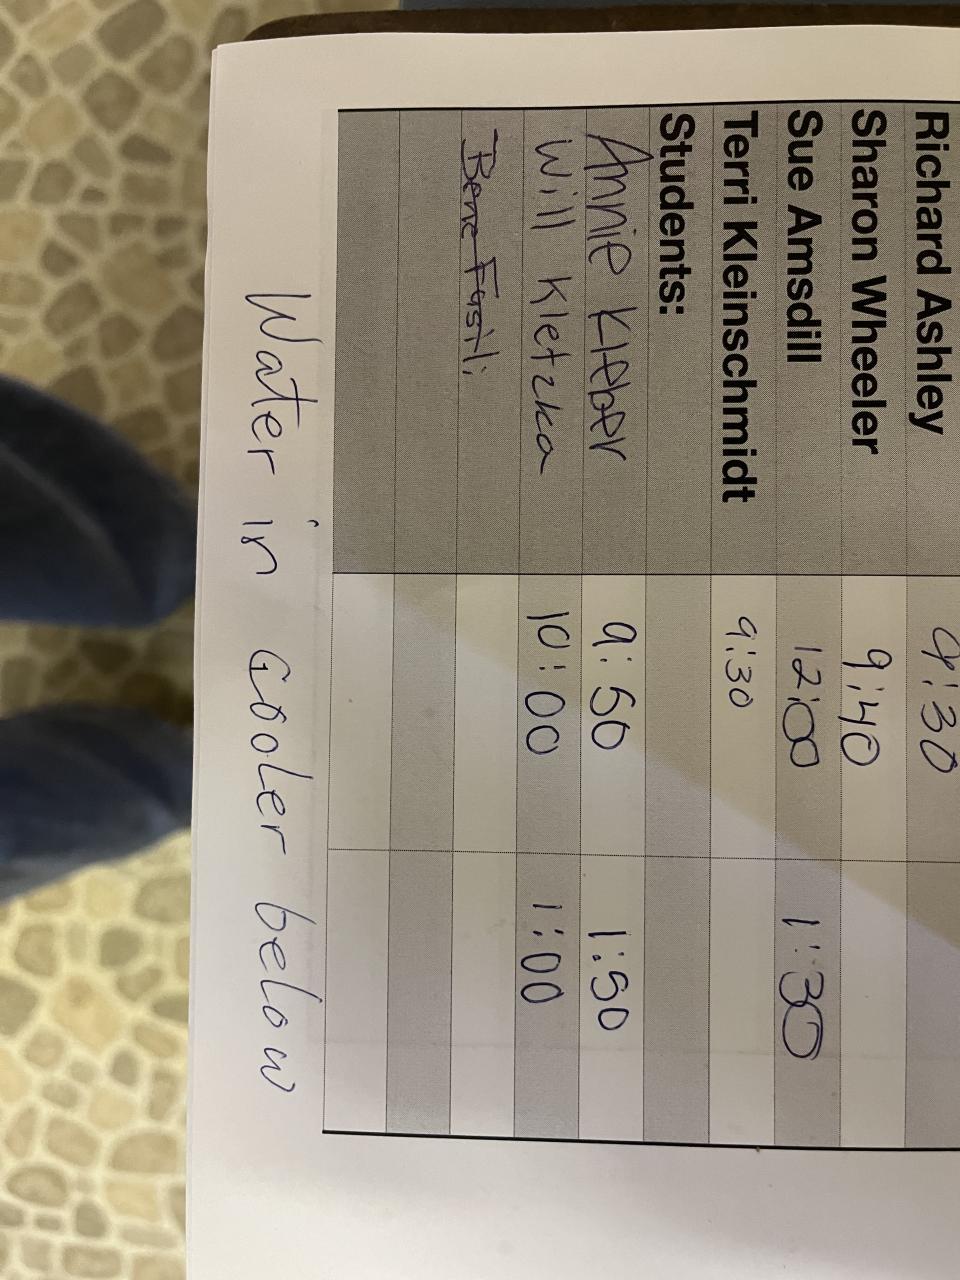 Richard Ashley 9:30
Sharon Wheeler 9:40
Sue Amsdill 12:00 1:30
Terri Kleinschmidt 9:30
Students:
Annie Kleber 9:50 1:50
Will Kletzka 10:00 1:00
Water in cooler below